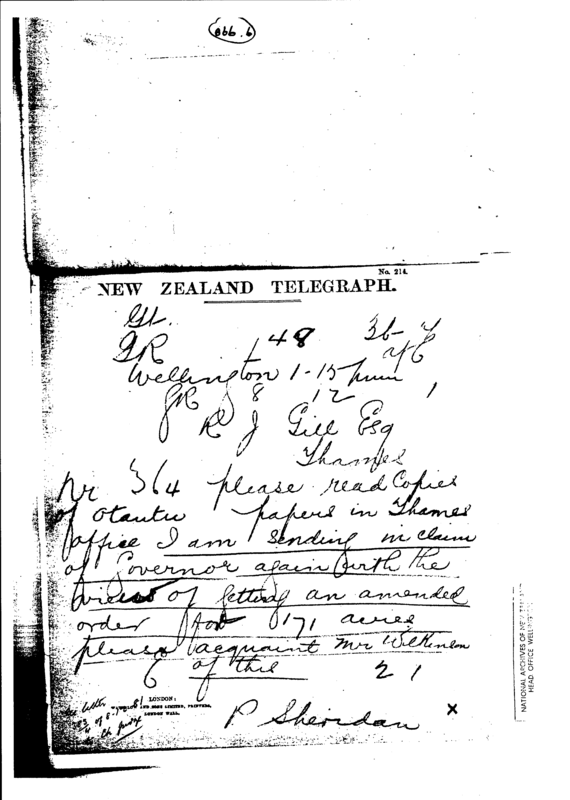 No. 214.
NEW ZEALAND TELEGRAPH.
GR 148
Wellington 1-15 pm
8 12 1
R J Gill Esq
Thames
Nr 364 please read Copies
of Otautu papers in Thames
office I am sending in claim
of Governor again with the
views of getting an amended
order for 171 acres
please acquaint Mr Wilkinson
6 of this 21
LONDON:
AND SONS LIMITED, PRINTERS,
LONDON WALL.
P Sheridan x
NATIONAL ARCHIVES OF NEW
HEAD OFFICE